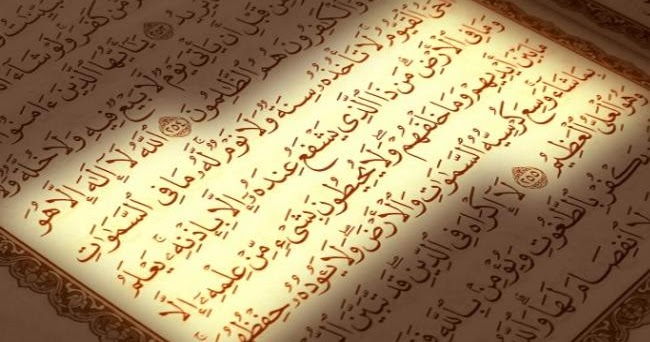 مَّن كَفَرَ وَلَوْ شَآءَ
يُرِيدُ ۝٢٥٣ يَٰٓأَيُّهَا ٱلَّذِينَ ءَامَنُوٓا۟
مِّن قَبْلِ أَن يَأْتِىَ يَوْمٌ لَّا بَيْعٌ فِيهِ وَلَا خُلَّةٌ وَلَا
وَٱلْكَٰفِرُونَ هُمُ ٱلظَّٰلِمُونَ ۝٢٥٤ ٱللَّهُ لَآ إِلَٰهَ إِلَّا هُوَ
ٱلْحَىُّ ٱلْقَيُّومُ لَا تَأْخُذُهُۥ سِنَةٌ وَلَا نَوْمٌ لَّهُۥ مَا فِى ٱلسَّمَٰوَٰتِ
وَمَا فِى ٱلْأَرْضِ مَن ذَا ٱلَّذِى يَشْفَعُ عِندَهُۥٓ إِلَّا بِإِذْنِهِۦ يَعْلَمُ
مَا بَيْنَ أَيْدِيهِمْ وَمَا خَلْفَهُمْ وَلَا يُحِيطُونَ بِشَىْءٍ مِّنْ عِلْمِهِۦٓ إِلَّا
بِمَا شَآءَ وَسِعَ كُرْسِيُّهُ ٱلسَّمَٰوَٰتِ وَٱلْأَرْضَ وَلَا يَـُٔودُهُۥ حِفْظُهُمَا
وَهُوَ ٱلْعَلِىُّ ٱلْعَظِيمُ ۝٢٥٥ لَآ إِكْرَاهَ فِى ٱلدِّينِ قَد تَّبَيَّنَ
يَكْفُرْ بِٱلطَّٰغُوتِ وَيُؤْمِنۢ بِٱللَّهِ
لَا ٱنفِصَامَ لَهَا وَٱللَّهُ